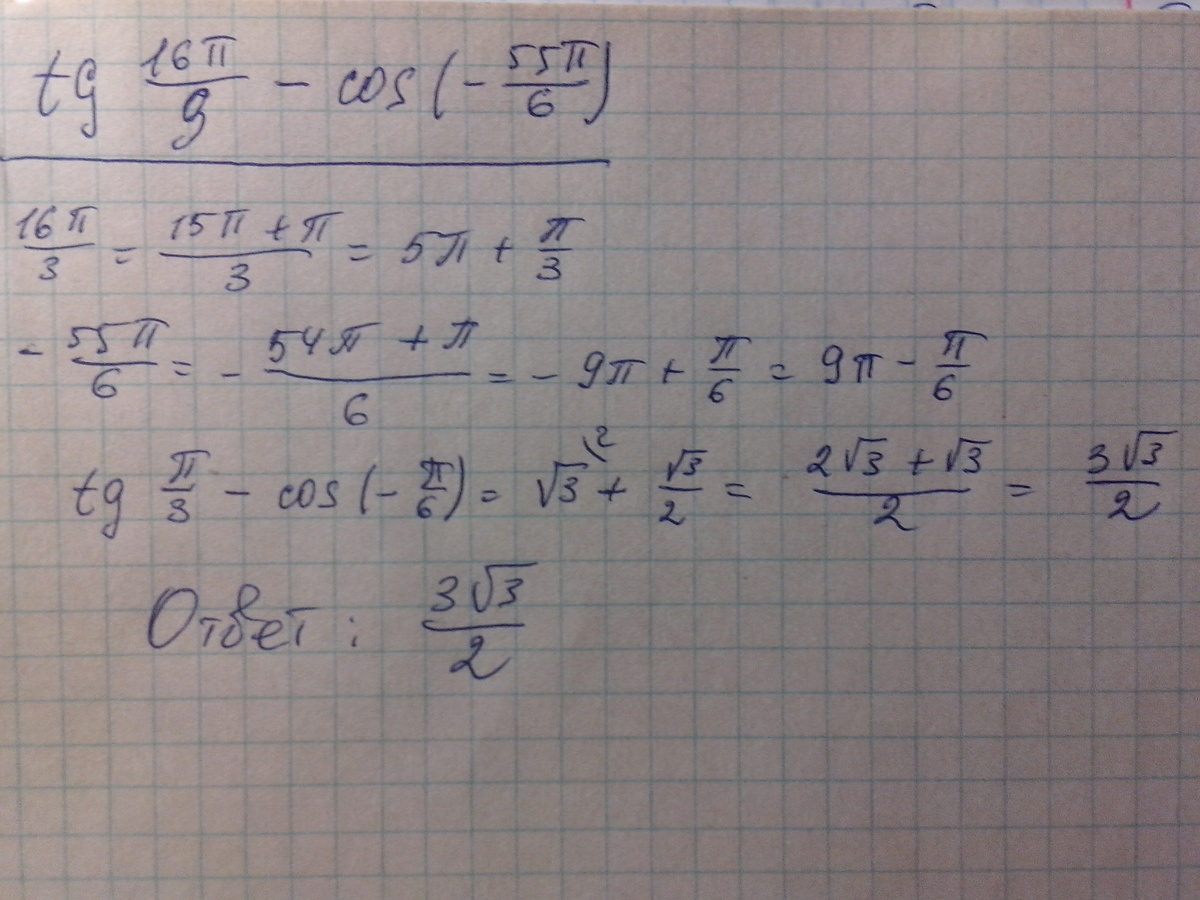 tg 16π/9 - cos(-55π/6)
16π/3 = 15π+π/3 = 5π + π/3
- 55π/6 = - 54π + π/6 = - 9π + π/6 = 9π - π/6
tg π/3 - cos(-π/6) = √3\2 + √3/2 = 2√3+√3/2 = 3√3/2
Ответ: 3√3/2